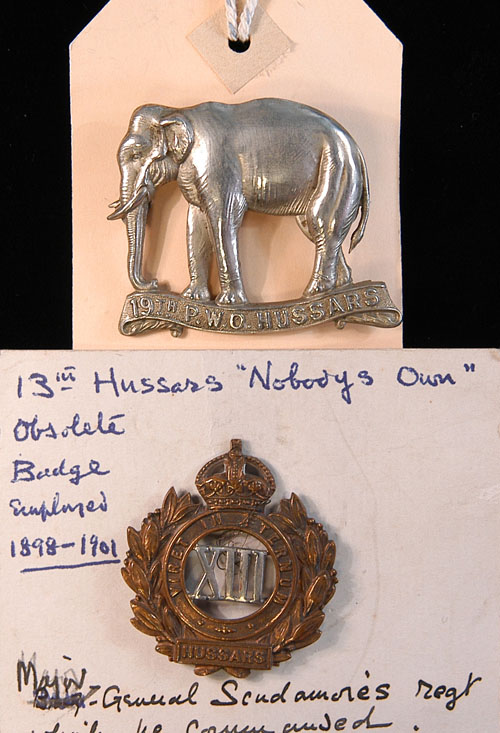 19TH P.W.O. HUSSARS
13th Hussars "Nobodys Own"
Obsolete
Badge
Employed
1898-1901
VIRET IN ÆTERNUM
XIII
HUSSARS
Major
-General Scudamore's regt
while he commanded.